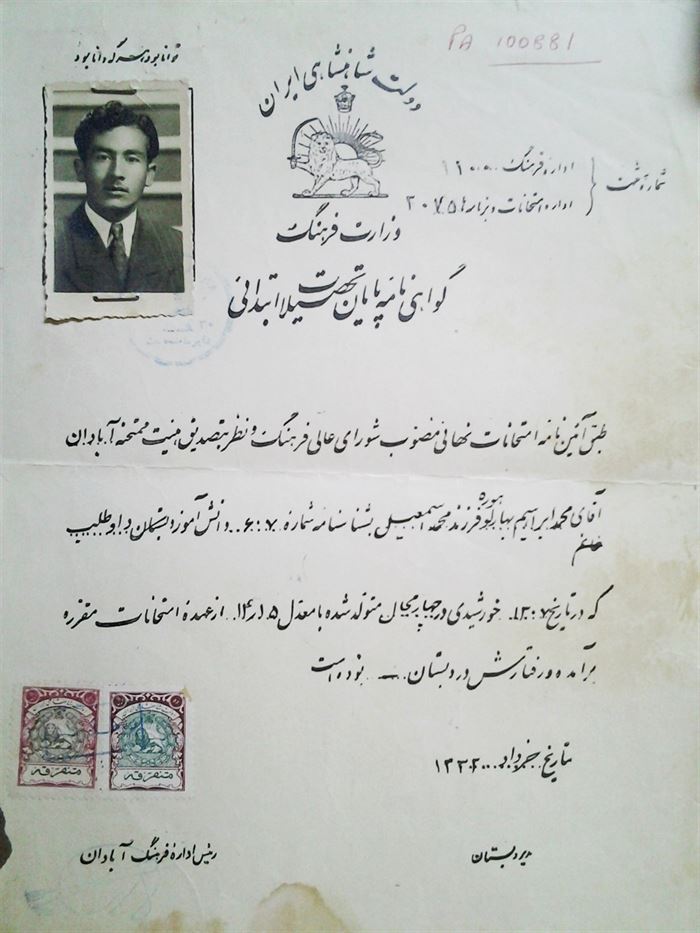 توانا بود هر که دانا بود
PA 100881
دولت شاهنشاهی ایران
شماره ثبت
اداره فرهنگ
اداره امتحانات و برنامه‌ها ۲۰۷۵۱
وزارت فرهنگ
گواهی نامه پایان تحصیلات ابتدائی
طبق آئین نامه امتحانات نهائی مصوب شورای عالی فرهنگ و نظر بتصدیق هیئت ممتحنه آبادان
آقای محمد ابراهیم بهارلو فرزند محمد اسمعیل بشناسنامه شماره ۶۰۷ دانش آموز دبستان داوطلب
که در تاریخ ۱۳۰۷ خورشیدی در متولد شده با معدل از عهده امتحانات مقرره
برآمده و رفتارش در دبستان — بوده است
تاریخ خرداد
مدیر دبستان
رئیس اداره فرهنگ آبادان
متفرقه
متفرقه